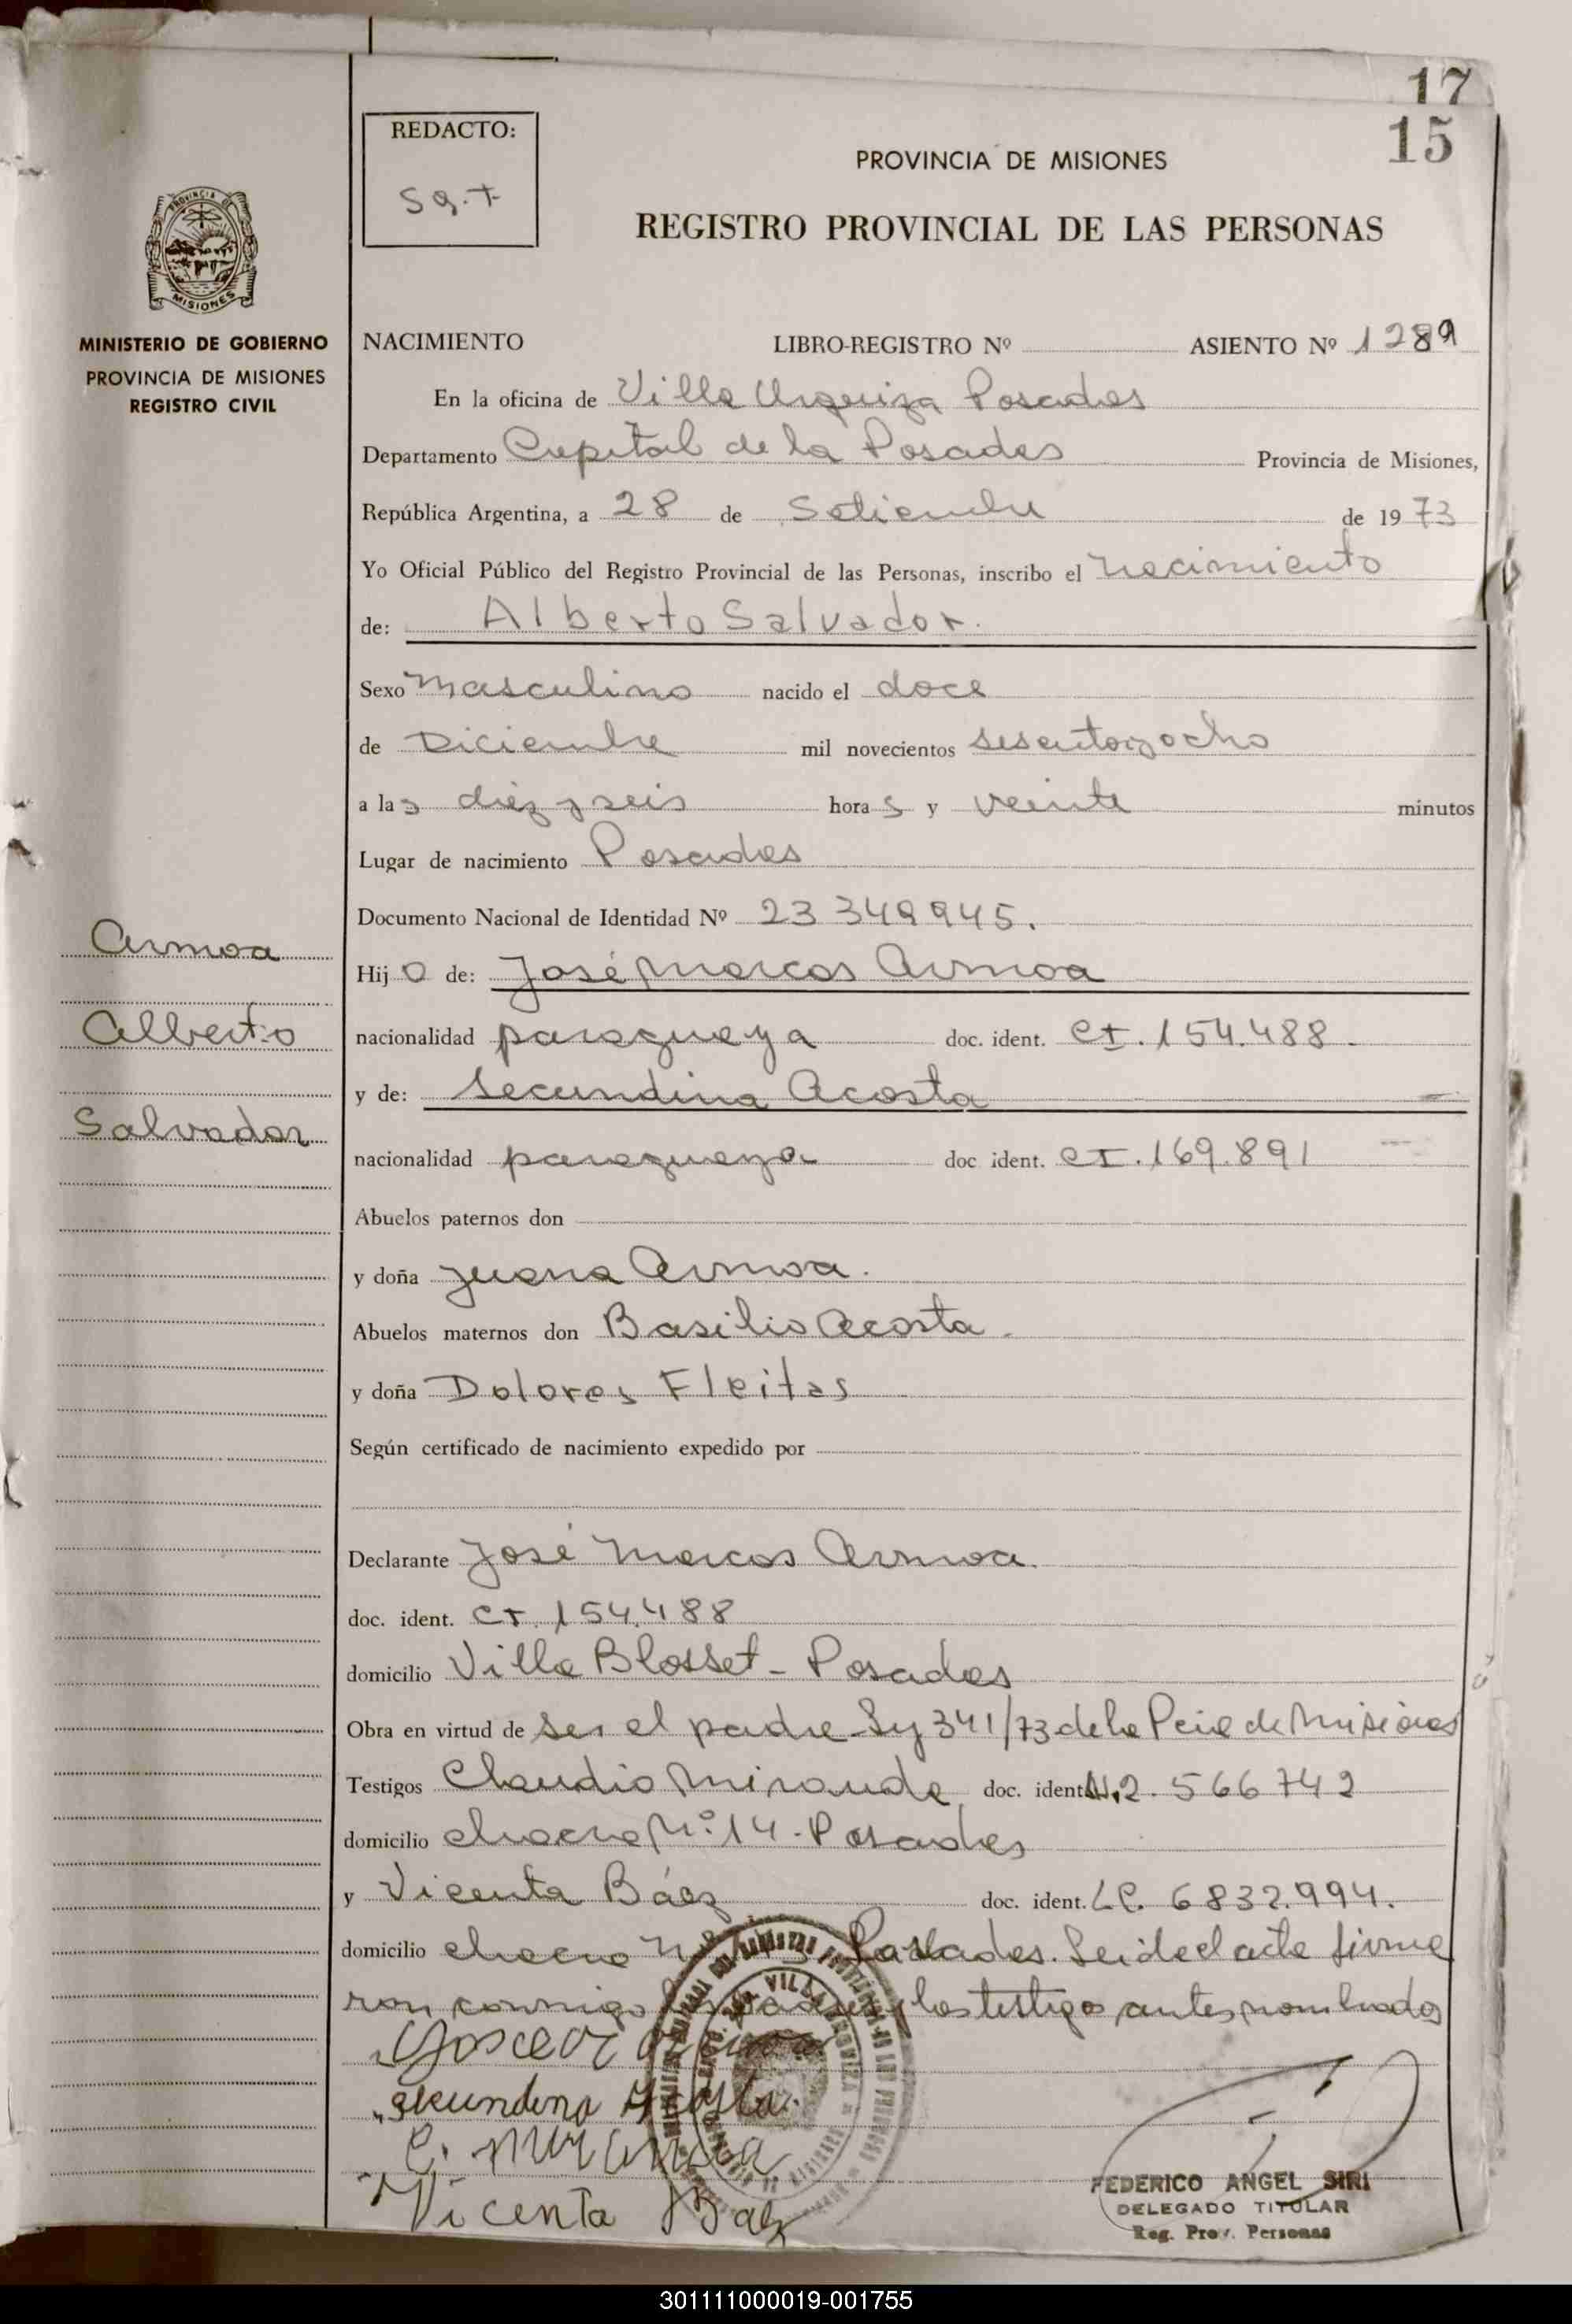 17
15
REDACTO:
Sg.t
PROVINCIA DE MISIONES
REGISTRO PROVINCIAL DE LAS PERSONAS
PROVINCIA DE
MISIONES
MINISTERIO DE GOBIERNO
PROVINCIA DE MISIONES
REGISTRO CIVIL
NACIMIENTO LIBRO-REGISTRO Nº ASIENTO Nº 1289
En la oficina de Villa Urquiza Posadas
Departamento Capital de la Posadas Provincia de Misiones,
República Argentina, a 28 de Setiembre de 1973
Yo Oficial Público del Registro Provincial de las Personas, inscribo el nacimiento
de: Alberto Salvador.
Sexo masculino nacido el doce
de Diciembre mil novecientos sesentayocho
a las diez y seis horas y veinte minutos
Lugar de nacimiento Posadas
Documento Nacional de Identidad Nº 23349945.
Armoa
Hijo de: José Marcos Armoa
Alberto
nacionalidad paraguaya doc. ident. CI. 154.488.
y de: Secundina Acosta
Salvador
nacionalidad paraguaya doc ident. CI. 169.891
Abuelos paternos don
y doña Juana Armoa.
Abuelos maternos don Basilio Acosta.
y doña Dolores Fleitas
Según certificado de nacimiento expedido por
Declarante José Marcos Armoa.
doc. ident. CI. 154.488
domicilio Villa Blosset - Posadas
Obra en virtud de ser el padre Ley 341/73 de la Pcia de Misiones
Testigos Claudio Miranda doc. ident. 2.566742
domicilio chacra Nº 14 - Posadas
y Vicenta Báez doc. ident. LC. 6832.994.
domicilio chacra Posadas. Leida el acta firma
ron conmigo padres y los testigos antes nombrados
Secundina Acosta
C. Miranda
Vicenta Baez
FEDERICO ANGEL SIRI
DELEGADO TITULAR
Reg. Prov. Personas
301111000019-001755